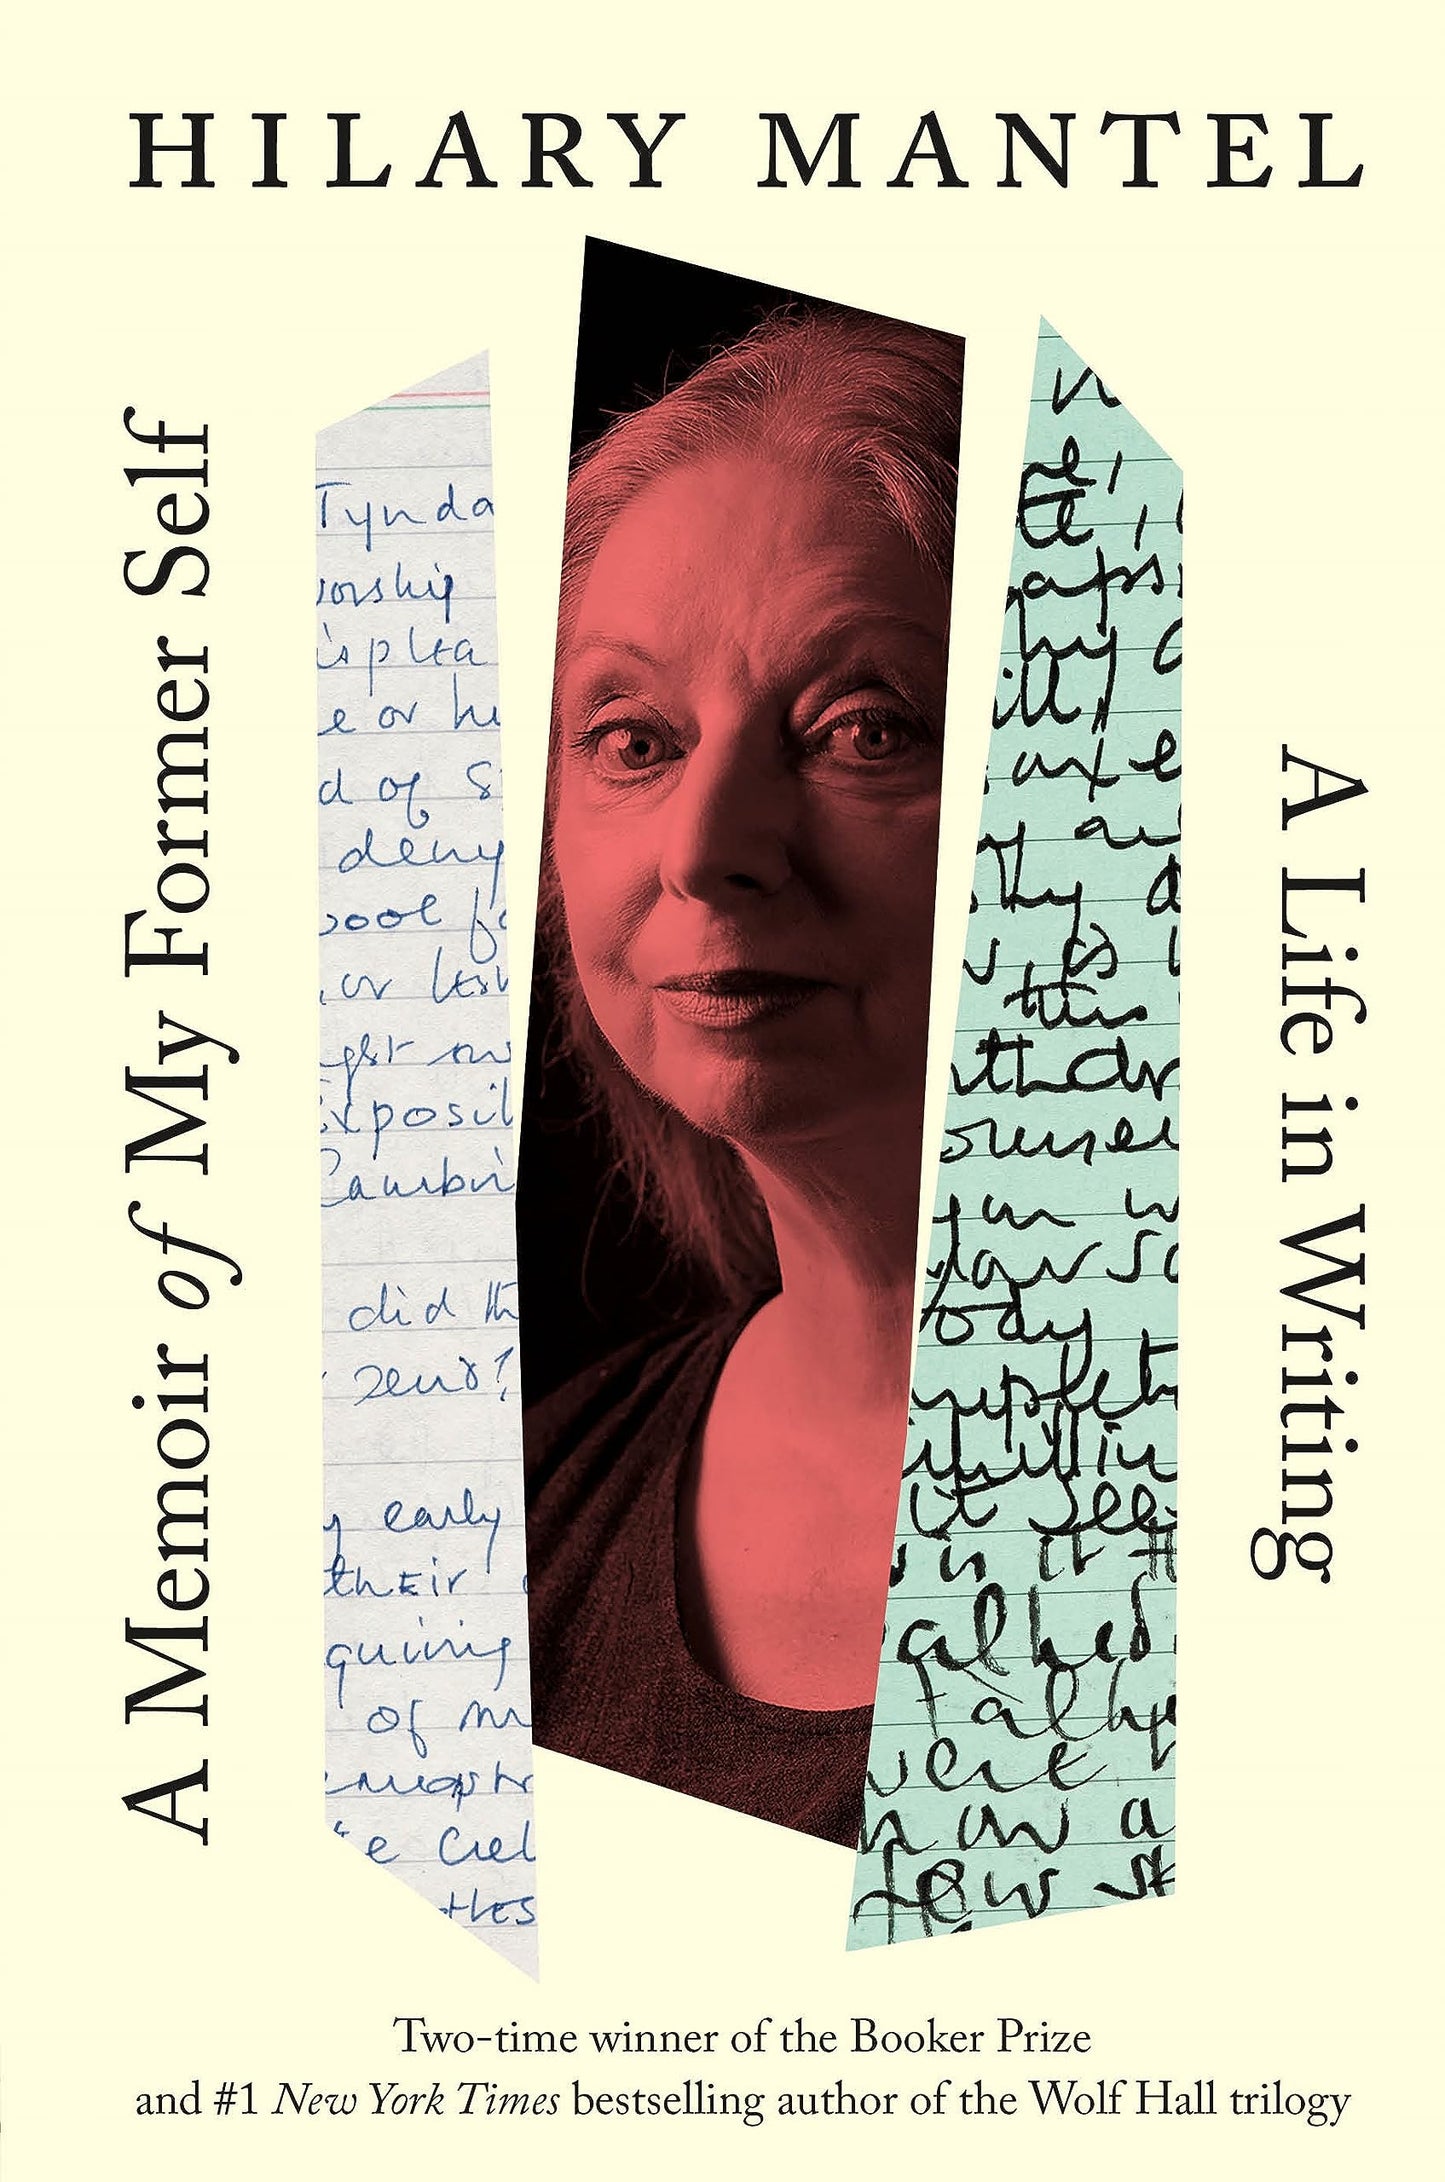 HILARY MANTEL
A Memoir of My Former Self
A Life in Writing
Tynda
orship
isplea
e or he
d of S
deny
ool fo
or les
ght on
Exposit
Cambri
did th
send?
y early
their
quiring
of m
e Ciel
thes
ody
mplet
it see
in it
alked
Talky
were
now a
few st
Two-time winner of the Booker Prize
and #1 New York Times bestselling author of the Wolf Hall trilogy